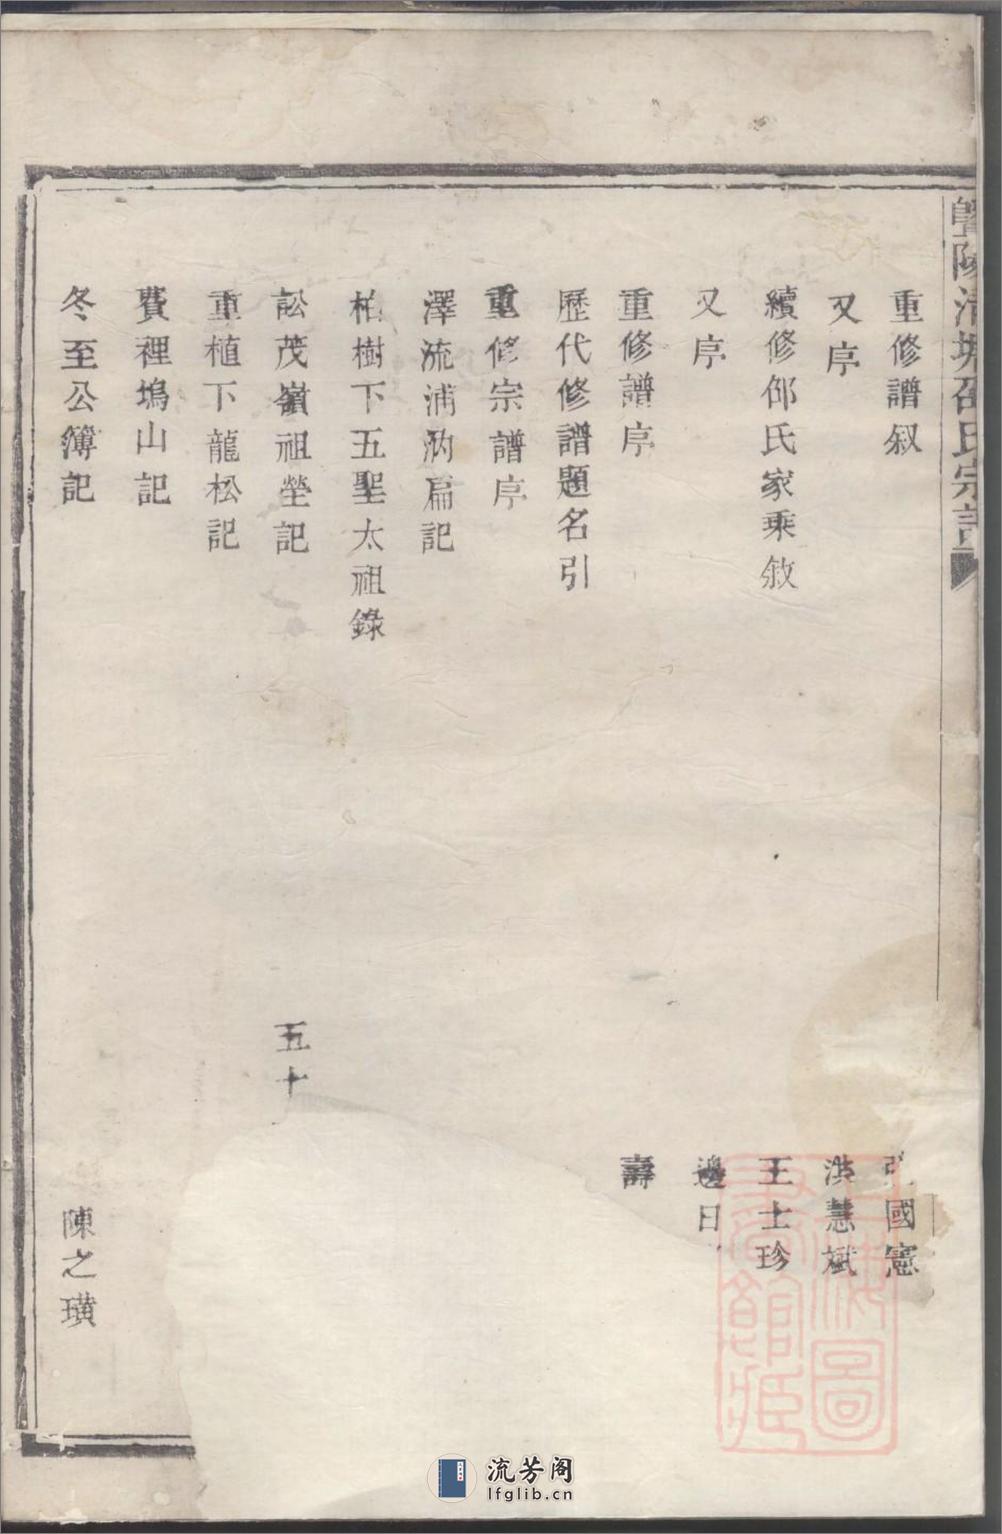 重修譜叙
國憲
又序
洪慧斌
續修邵氏家乘敘
王士珍
又序
邊日
重修譜序
壽
歷代修譜題名引
重修宗譜序
澤流浦汭扁記
柏樹下五聖太祖錄
訟茂嶺祖塋記
五十
重植下龍松記
費裡塢山記
冬至公簿記
陳之璜
上海圖書館藏
流芳阁
lfglib.cn